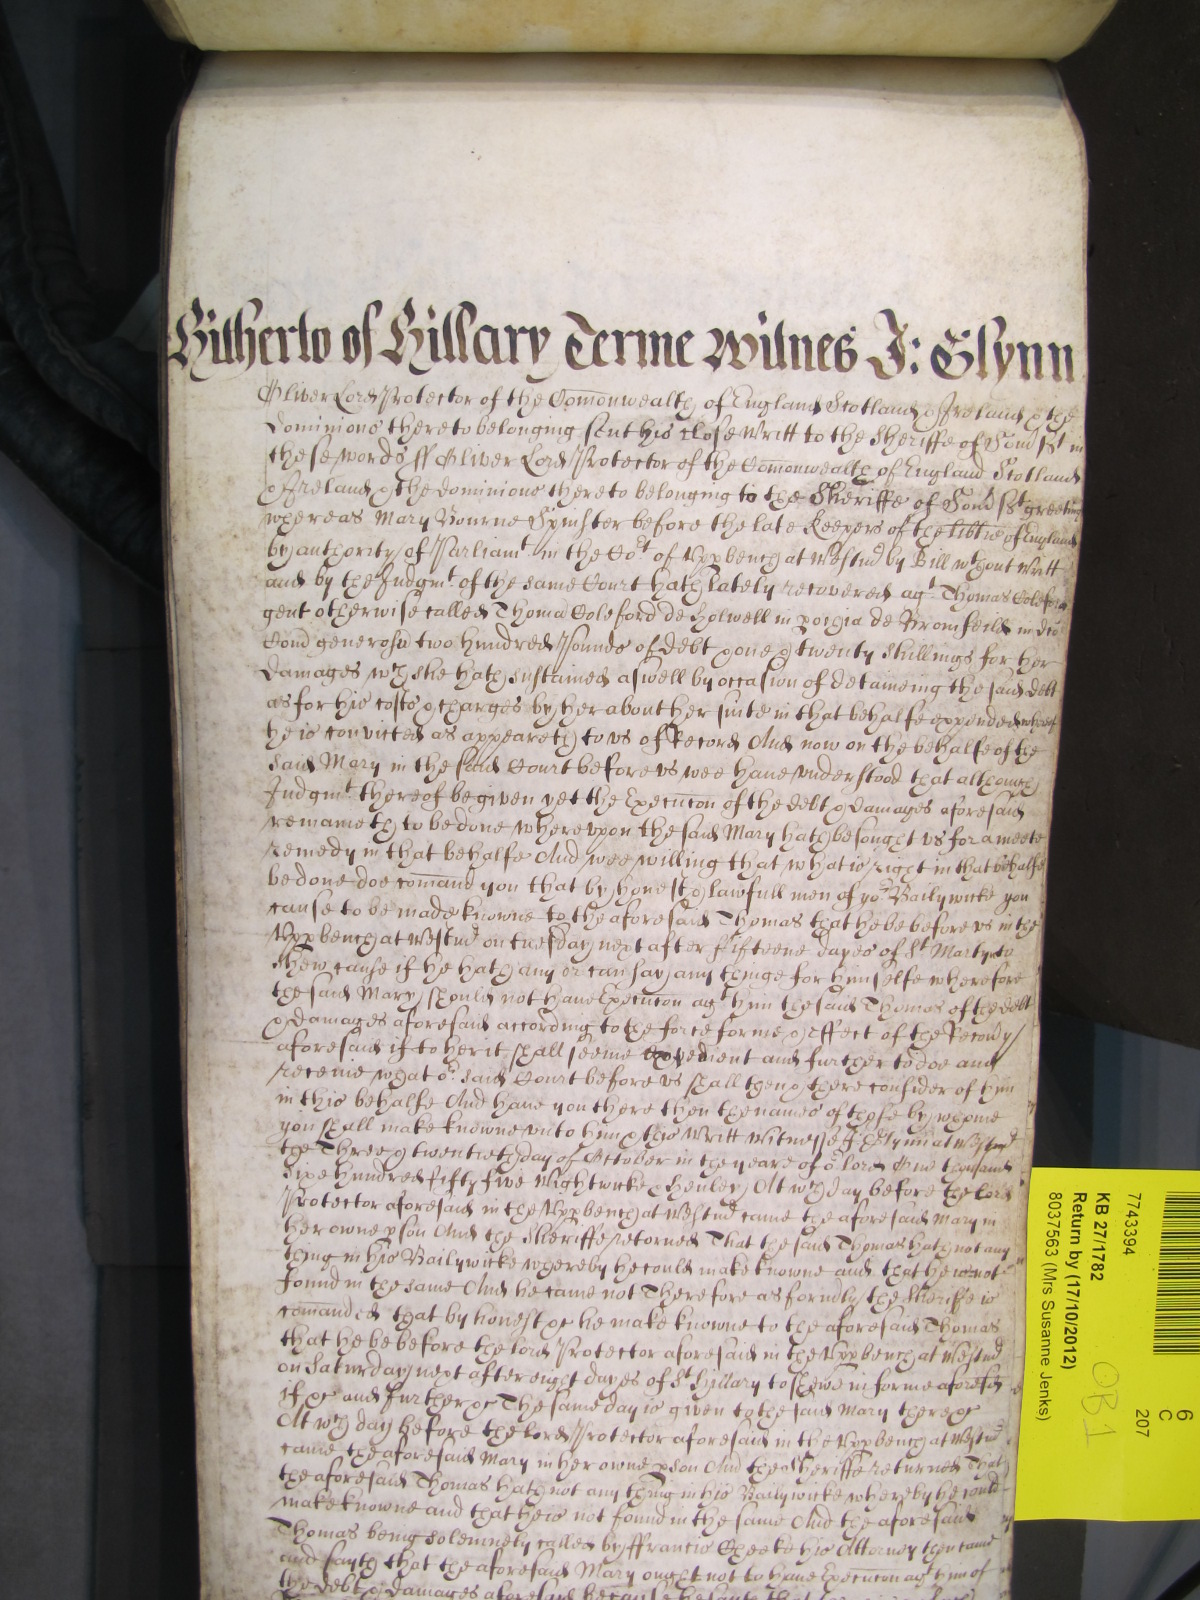 Hitherto of Hillary Terme Witnes J: Glynn
Oliver Lord Protector of the Comonwealth of England Scotland & Ireland & the
Dominions thereto belonging sent his close Writt to the Sheriffe of in
these words ss Oliver Lord Protector of the Comonwealth of England Scotland
& Ireland & the dominions thereto belonging to the Sheriffe of greeting
whereas Mary Bourne Spinster before the late Keepers of the libtie of England
by authority of Parliamt in the Cot of Uppbench at Westmd by Bill wthout Writt
and by the Judgmt of the same Court hath lately recovered agt Thomas
gent otherwise called Thoma Coleford de Holwell in de
generosu two hundred Pounds of debt & one & twenty shillings for her
damages wch she hath sustained aswell by occasion of detaineing the said debt
as for his costs & charges by her about her suite in that behalfe expended whereof
he is convicted as appeareth to us of Record And now on the behalfe of the
said Mary in the said Court before us wee have understood that although
Judgmt thereof be given yet the Execucon of the debt & damages aforesaid
remaineth to be done whereupon the said Mary hath besought us for a meete
remedy in that behalfe And wee willing that what is right in that behalfe
be done doe comand you that by honest & lawfull men of yor Bailywicke you
cause to be made knowne to the aforesaid Thomas that he be before us in the
Uppbench at Westmd on tuesday next after fifteene dayes of St Martyn to
shew cause if he hath any or can say any thinge for himselfe wherefore
the said Mary should not have Execucon agt him the said Thomas of the debt
& damages aforesaid according to the force forme & effect of the Recovy
aforesaid if to her it shall seeme expedient and further to doe and
receive what or said Court before us shall then & there consider of him
in this behalfe And have you there then the names of those by whome
you shall make knowne unto him & this Writt Witnesse J: Glynn at Westmd
the Three & twentieth day of October in the yeare of or lord One thousand
sixe hundred fifty five Wightwicke & Henley At wch day before the Lord
Protector aforesaid in the Uppbench at Westmd came the aforesaid Mary in
her owne pson And the Sheriffe retorned That the said Thomas hath not any
thing in his Bailywicke whereby he could make knowne and that he is not
found in the same And he came not Therefore as formdly the Sheriffe is
comanded that by honest &c he make knowne to the aforesaid Thomas
that he be before the lord Protector aforesaid in the Uppbench at Westmd
on Saturday next after eight dayes of St Hyllary to shewe in forme aforesd
if &c and further &c The same day is given to the said Mary there &c
At wch day before the lord Protector aforesaid in the Uppbench at Westmd
came the aforesaid Mary in her owne pson And the Sheriffe returned That
the aforesaid Thomas hath not any thing in his Bailywicke whereby he could
make knowne and that he is not found in the same And the aforesaid
Thomas being solemnely called by ffrancis Cheeke his Attorney then came
and sayth that the aforesaid Mary ought not to have Execucon agt him of
the debt & damages aforesaid because he saith that
7743394
KB 27/1782
Return by (17/10/2012)
8037563 (Mrs Susanne Jenks)
OB1
6
C
207